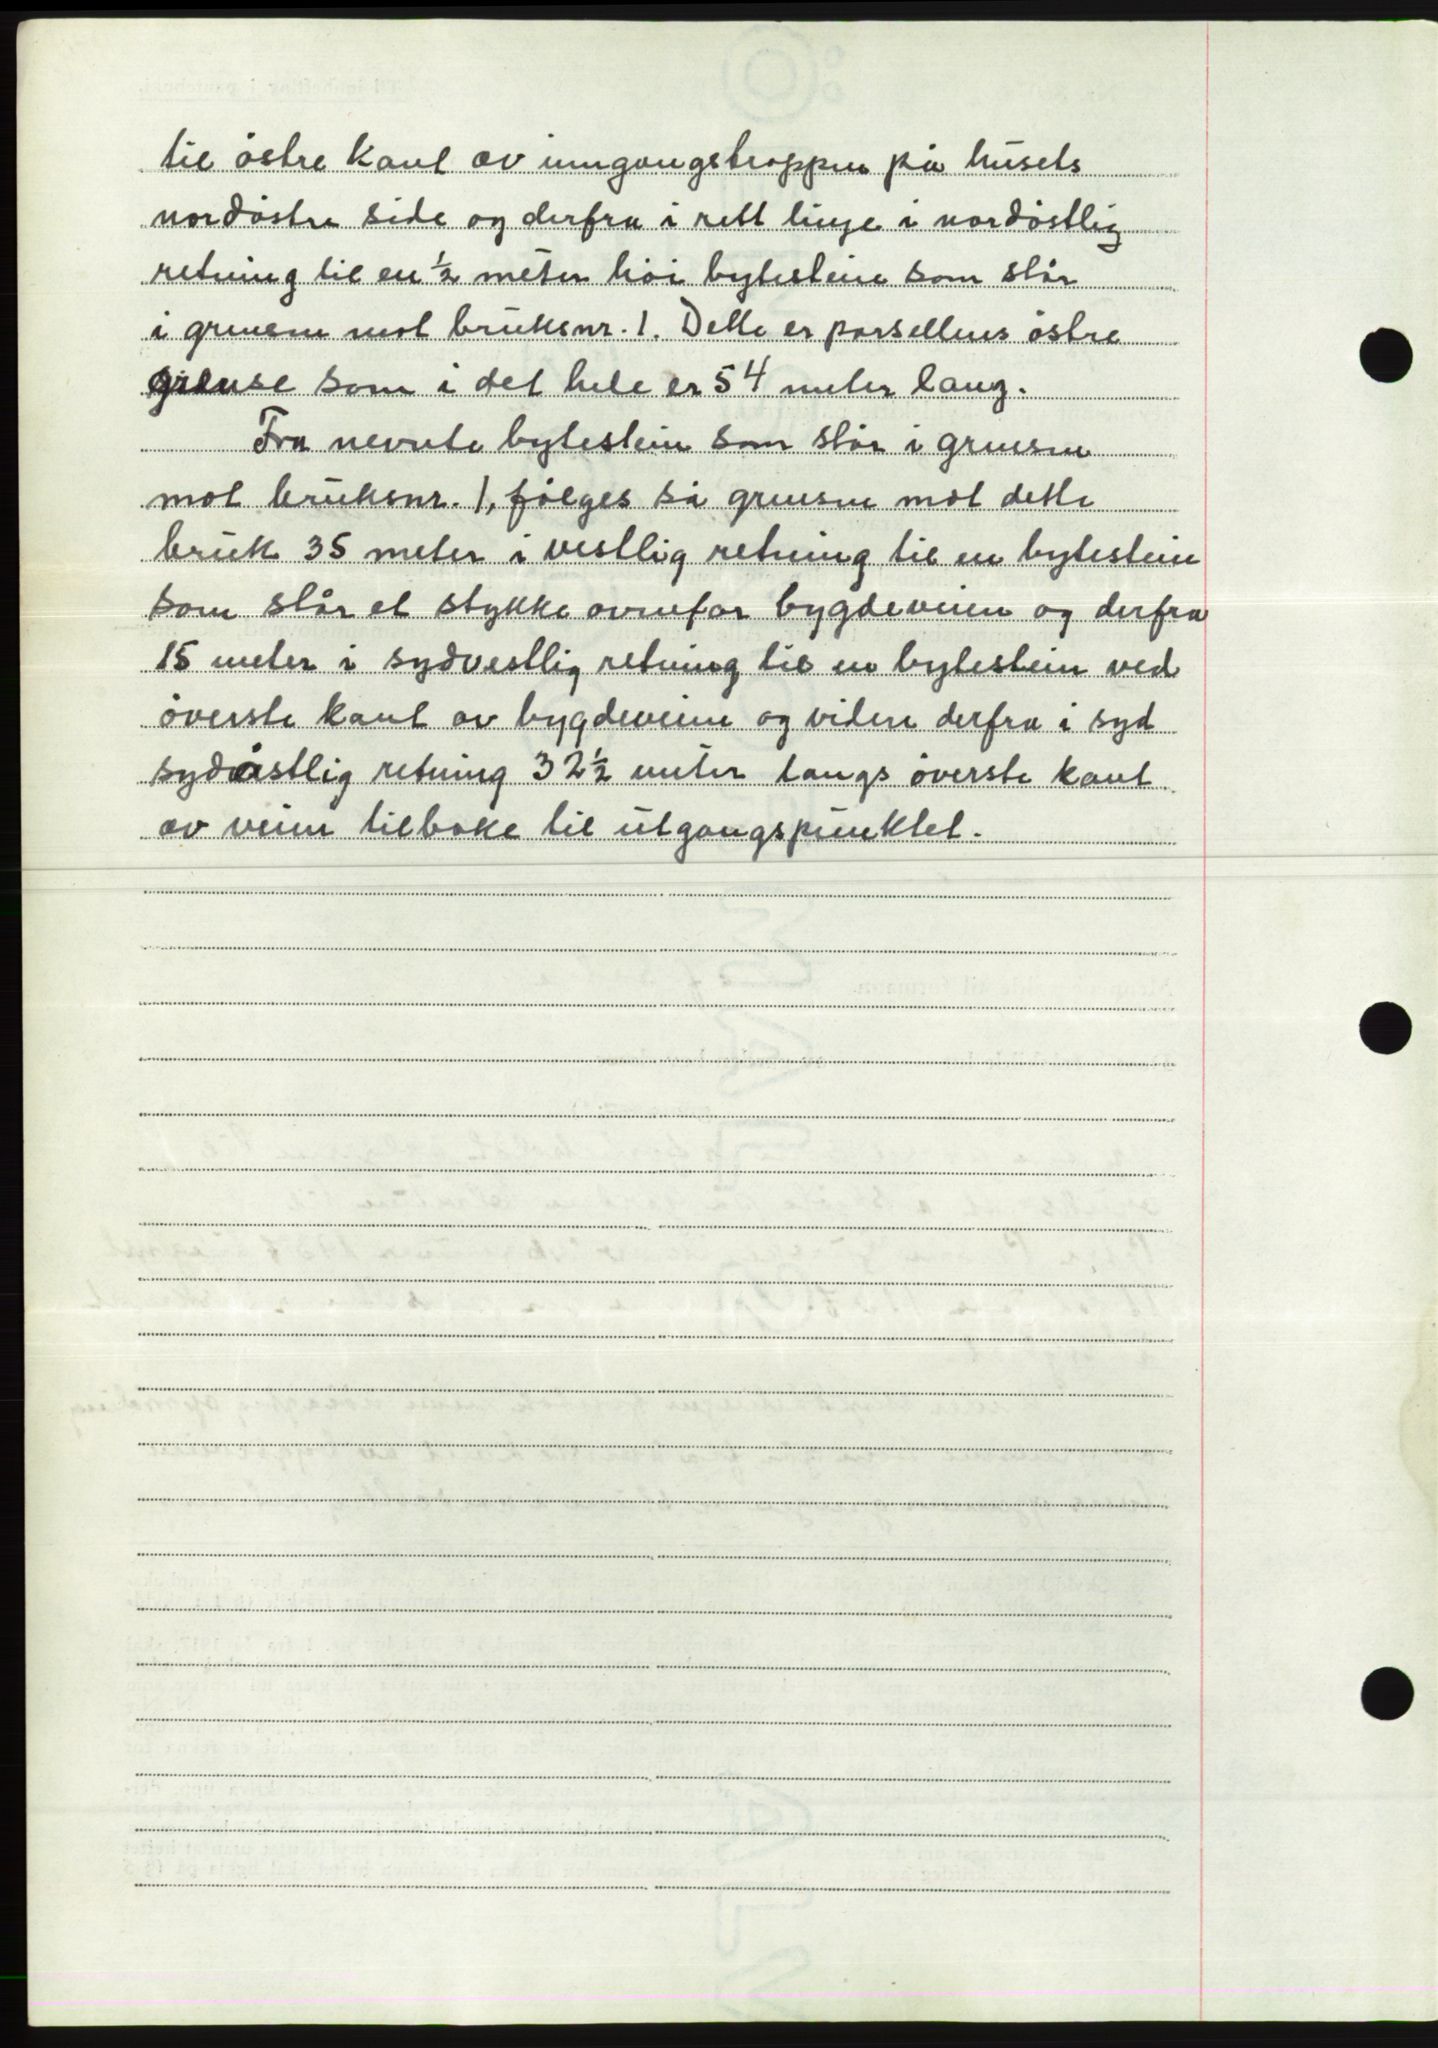 til östre kant av inngangstrappen på husets
nordöstre side og derfra i rett linje i nordöstlig
retning til en ½ meter höi bytestein som står
i grensen mot bruksnr. 1. Dette er parsellens östre
grense som i det hele er 54 meter lang.
Fra nevnte bytestein som står i grensen
mot bruksnr. 1, fölges så grensen mot dette
bruk 35 meter i vestlig retning til en bytestein
som står et stykke ovenfor bygdeveien og derfra
15 meter i sydvestlig retning til en bytestein ved
överste kant av bygdeveien og videre derfra i syd
sydöstlig retning 32½ meter langs överste kant
av veien tilbake til utgangspunktet.